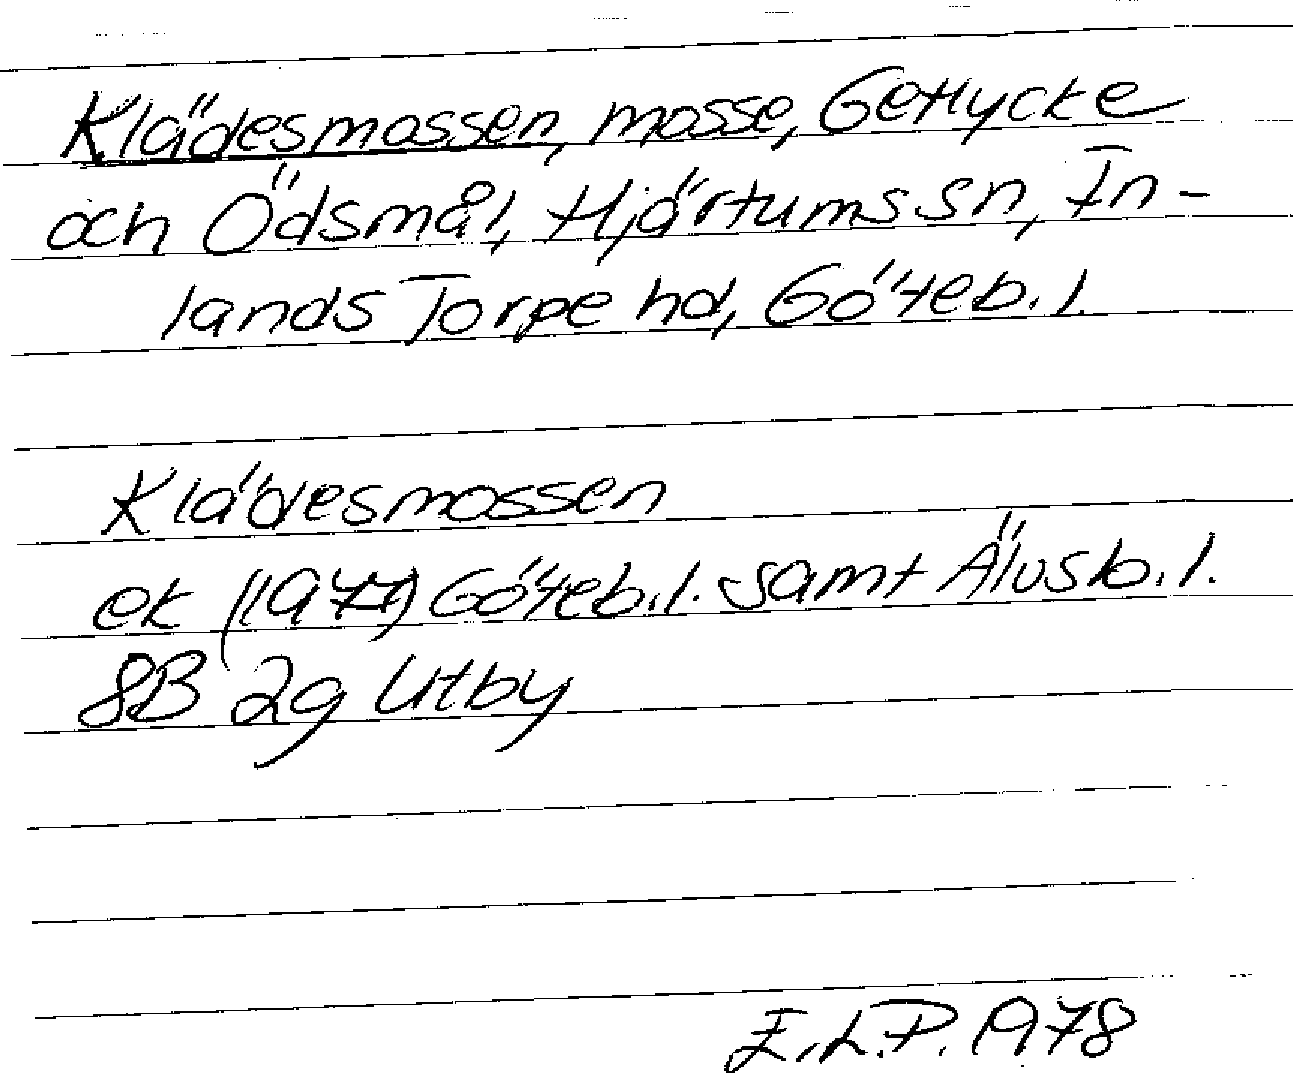 Klädesmossen, mosse, Getlycke
och Ödsmål, Hjärtums sn, In-
lands Torpe hd, Göteb. l.
Klädesmossen
ek (1977) Göteb. l. samt Älvsb. l.
8B 2g Utby
E.L.P. 1978